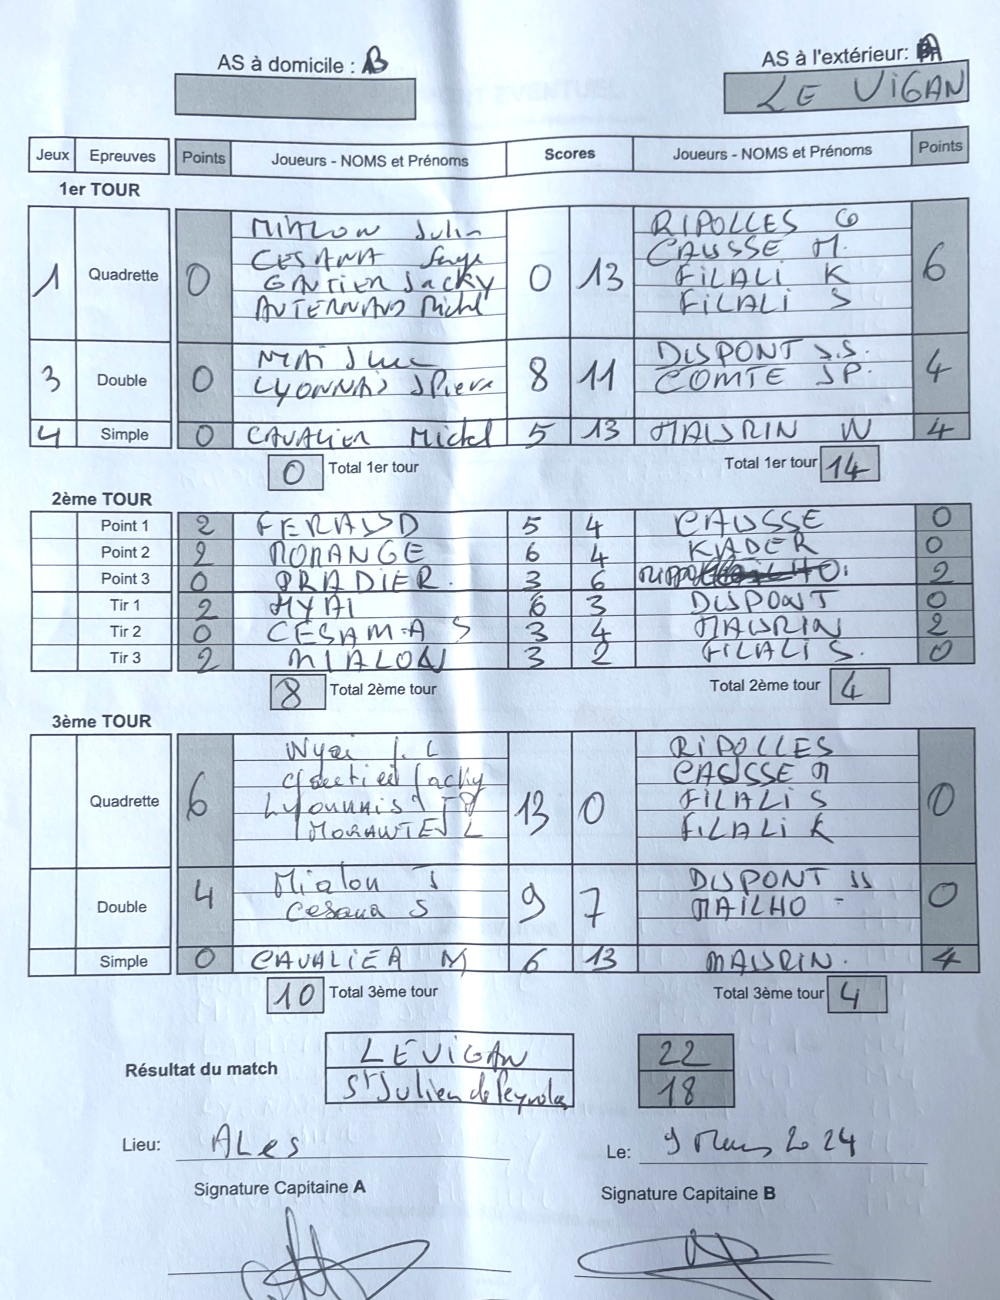 AS à domicile : B
AS à l'extérieur: A
LE VIGAN
Jeux Epreuves Points Joueurs - NOMS et Prénoms Scores Joueurs - NOMS et Prénoms Points
1er TOUR
1 Quadrette 0 0 13 6
MIALON Julin RIPOLLES G
CESANA Serge CAUSSE M.
GAUTIER Jacky FILALI K
Michel FILALI S
3 Double 0 8 11 4
DUPONT J.S.
LYONNAIS JPierre COMTE JP.
4 Simple 0 CAVALIER Michel 5 13 MAURIN W 4
0 Total 1er tour Total 1er tour 14
2ème TOUR
Point 1 2 FERAUD 5 4 CAUSSE 0
Point 2 2 MORANGE 6 4 KADER 0
Point 3 0 PRADIER. 3 6 2
Tir 1 2 6 3 DUPONT 0
Tir 2 0 CESAMA S 3 4 MAURIN 2
Tir 3 2 MIALON 3 2 FILALI S. 0
8 Total 2ème tour Total 2ème tour 4
3ème TOUR
Quadrette 6 13 0 0
RIPOLLES
Jacky CAUSSE M
Lyonnais JP FILALI S
L FILALI K
Double 4 9 7 0
Mialon J DUPONT JJ
Cesana S MAILHO -
Simple 0 CAVALIER M 6 13 MAURIN. 4
10 Total 3ème tour Total 3ème tour 4
Résultat du match
LE VIGAN 22
St Julien de Peyrolas 18
Lieu: ALes
Le: 9 Mars 2024
Signature Capitaine A
Signature Capitaine B